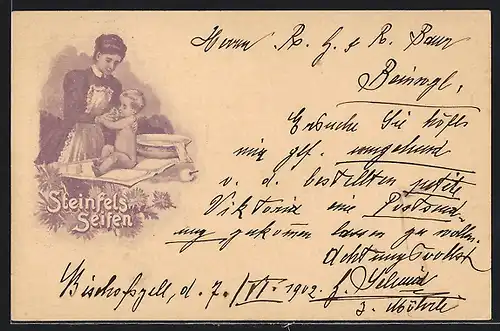 Steinfels
Seifen
Herrn Rs. H. & R. Baur
Beinwyl,
Ersuche Sie höfl.
mir gfl. umgehend
v. d. bestellten petits
Viktoria eine Postsend-
ung zukommen lassen zu wollen.
Achtungsvollst
Bischofszell, d. 7./VI. 1902.
z. Möhrle